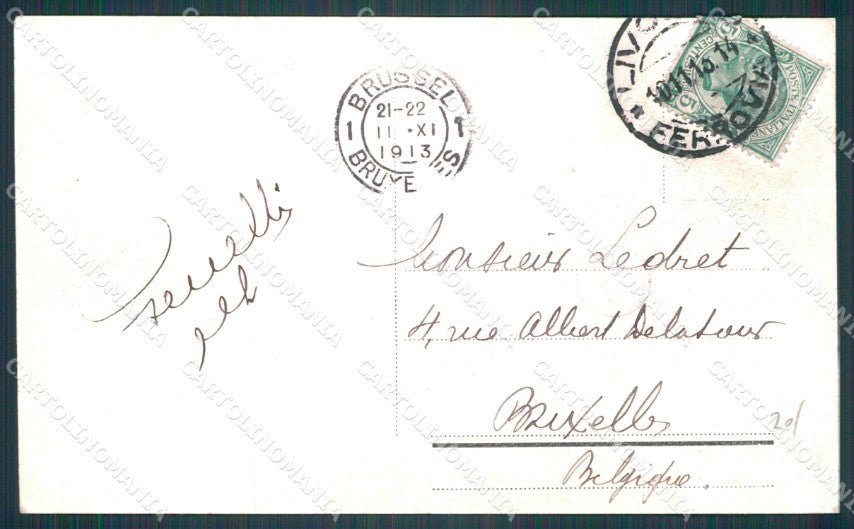 BRUSSEL
1 21-22 1
11 XI
1913
BRUXE ES
LIVO
10.11.13.14
FERROVIA
POSTE ITALIANE
CENT
5
Monsieur Ledret
4, rue Albert Delatour
Bruxelles
Belgique.
CARTOLINOMANIA